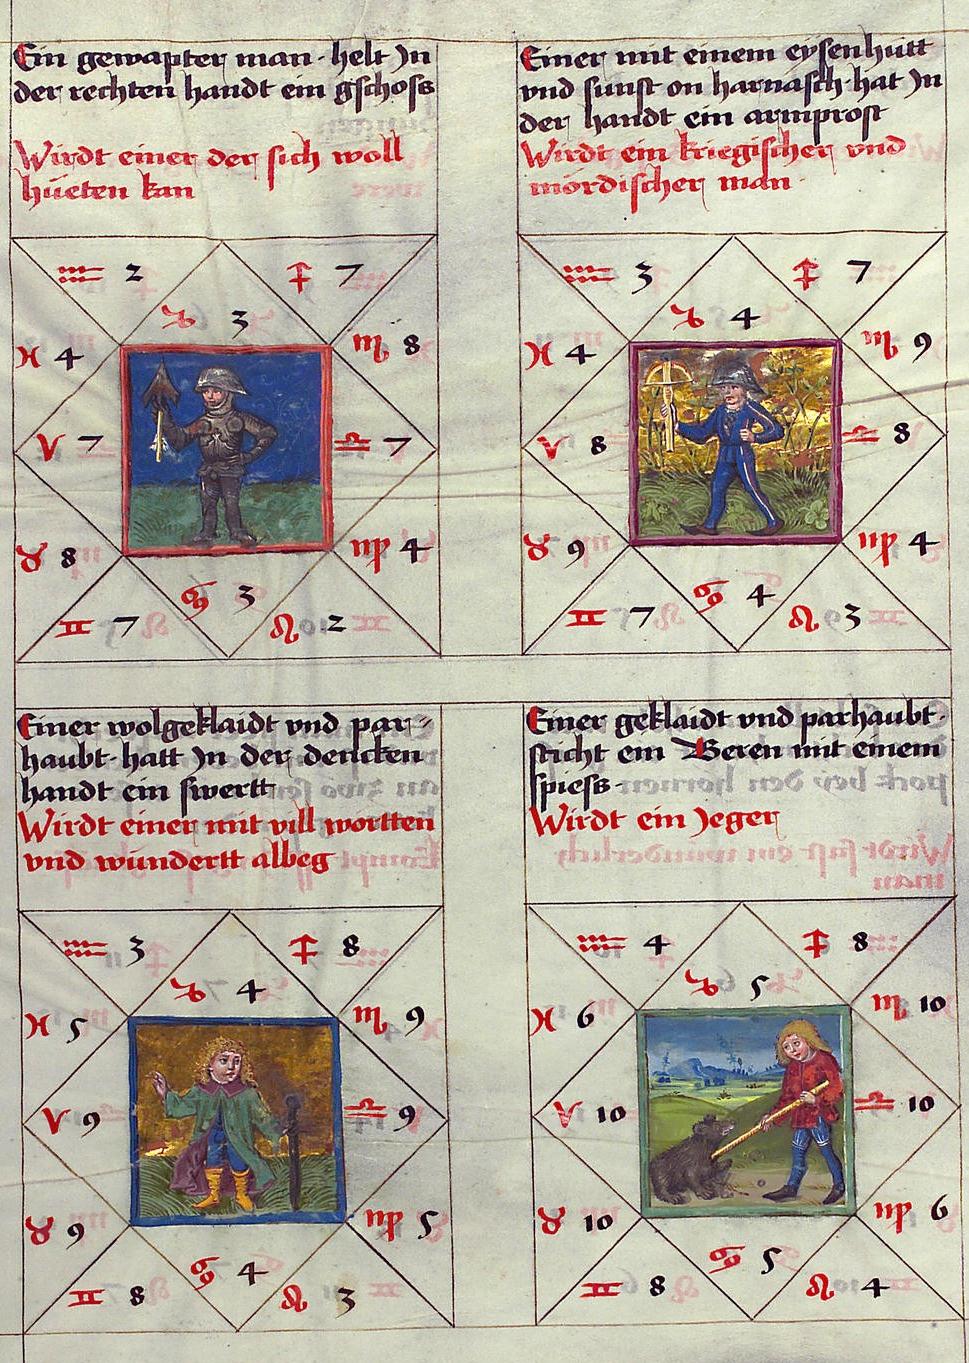 Ein gewapter man · helt In
der rechten handt ein gschoss
Wirdt einer der sich woll
hüeten kan
♒ 2
♐ 7
♑ 3
♓ 4
♏ 8
♈ 7
♎ 7
♉ 8
♍ 4
♊ 7
♋ 3
♌ 2
Einer mit einem eysenhütt
vnd sunst on harnasch hat In
der handt ein armprost
Wirdt ein kriegischer vnd
mördischer man
♒ 3
♐ 7
♑ 4
♓ 4
♏ 9
♈ 8
♎ 8
♉ 9
♍ 4
♊ 7
♋ 4
♌ 3
Einer wolgeklaidt vnd par-
haubt · hatt In der dencken
handt ein swertt
Wirdt einer mit vill wortten
vnd wundertt albeg
♒ 3
♐ 8
♑ 4
♓ 5
♏ 9
♈ 9
♎ 9
♉ 9
♍ 5
♊ 8
♋ 4
♌ 3
Einer geklaidt vnd parhaubt ·
sticht ein Beren mit einem
spiess ·
Wirdt ein Jeger
♒ 4
♐ 8
♑ 5
♓ 6
♏ 10
♈ 10
♎ 10
♉ 10
♍ 6
♊ 8
♋ 5
♌ 4